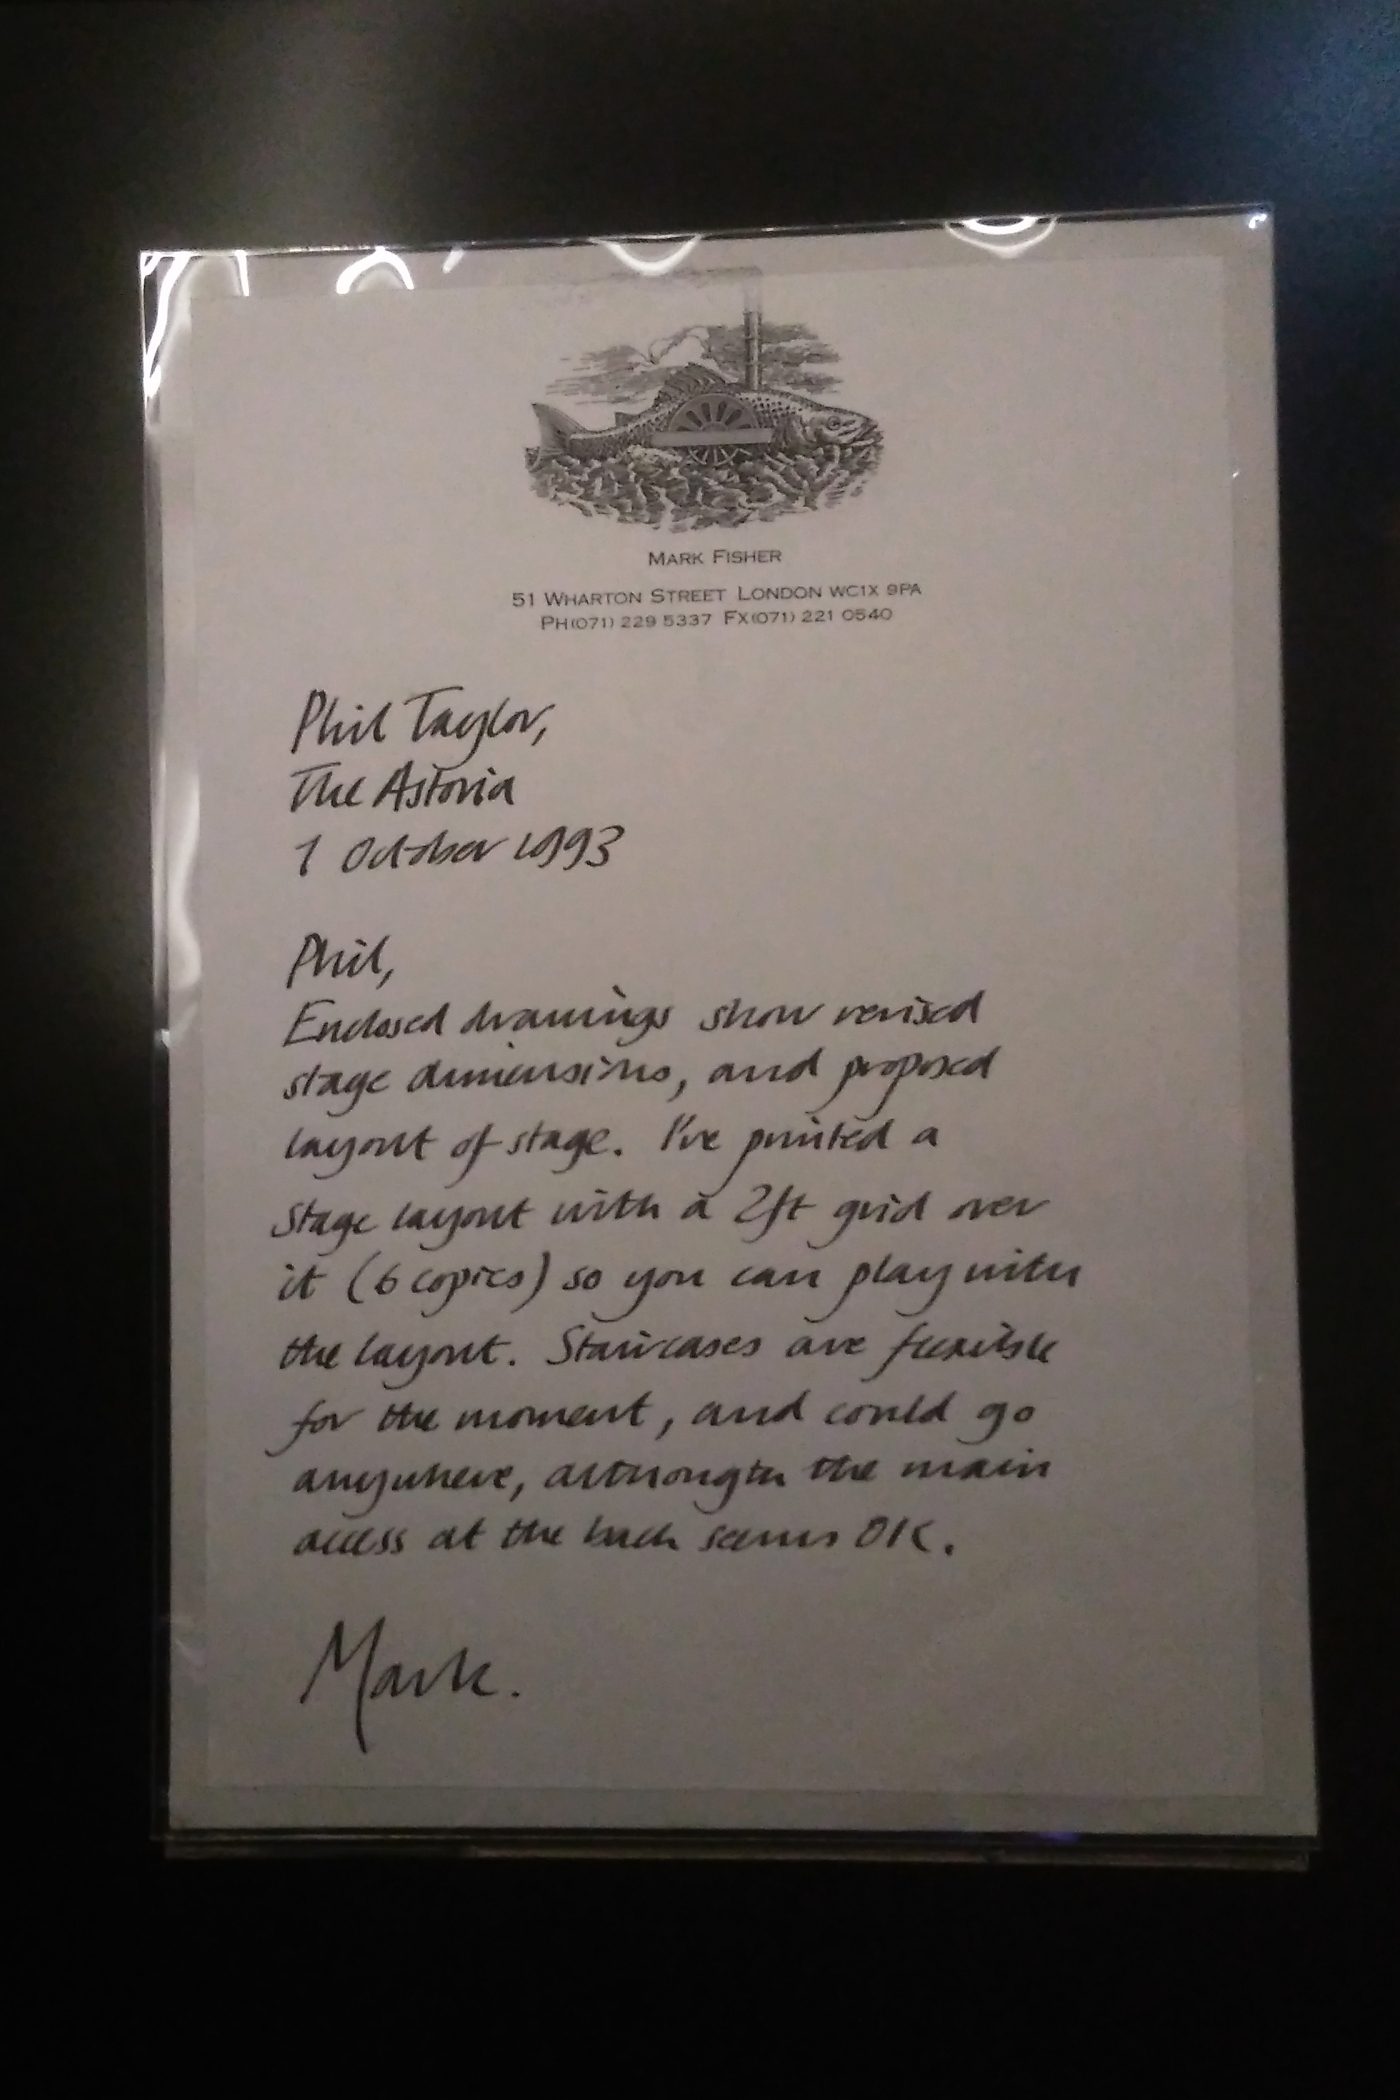 MARK FISHER
51 WHARTON STREET LONDON WC1X 9PA
PH(071) 229 5337 FX(071) 221 0540
Phil Taylor,
The Astoria
1 October 1993
Phil,
Enclosed drawings show revised
stage dimensions, and proposed
layout of stage. I've printed a
stage layout with a 2ft grid over
it (6 copies) so you can play with
the layout. Staircases are flexible
for the moment, and could go
anywhere, although the main
access at the back seems OK.
Mark.